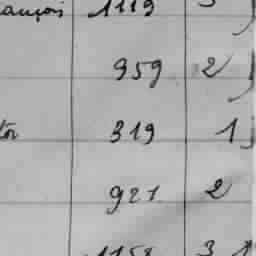 ançois 1119 3
959 2
tor 319 1
921 2
1158 3